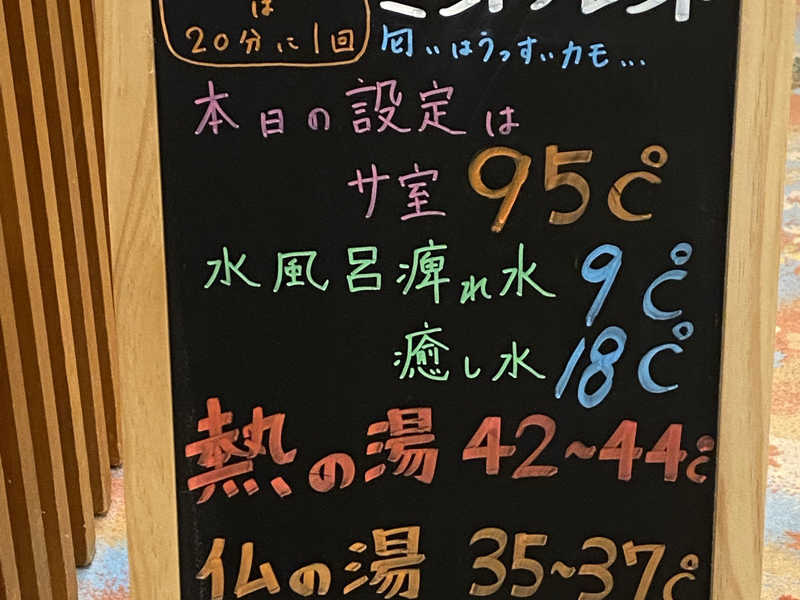 は
20分に1回
匂いはうっすいカモ...
本日の設定は
サ室 95℃
水風呂痺れ水 9℃
癒し水 18℃
熱の湯 42~44℃
仏の湯 35~37℃